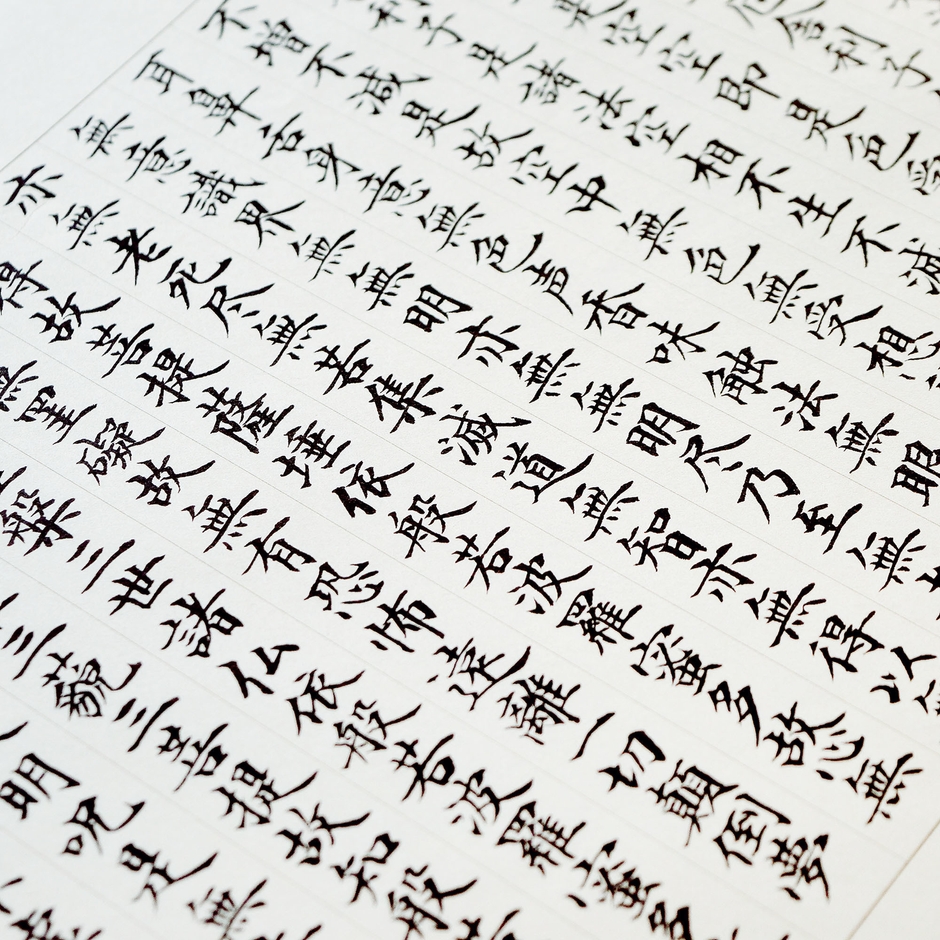 舎利子
是空空即是色受
利子是諸法空相不生不滅
不増不減是故空中無色無受想
耳鼻舌身意無色声香味触法無眼
無意識界無無明亦無無明尽乃至無
亦無老死尽無苦集滅道無智亦無得以
得故菩提薩埵依般若波羅蜜多故心無
無罣礙故無有恐怖遠離一切顛倒夢
槃三世諸仏依般若波羅蜜多
三藐三菩提故知般
明呪是無